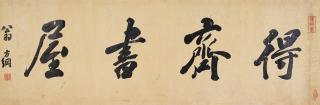 得齋書屋
翁方綱